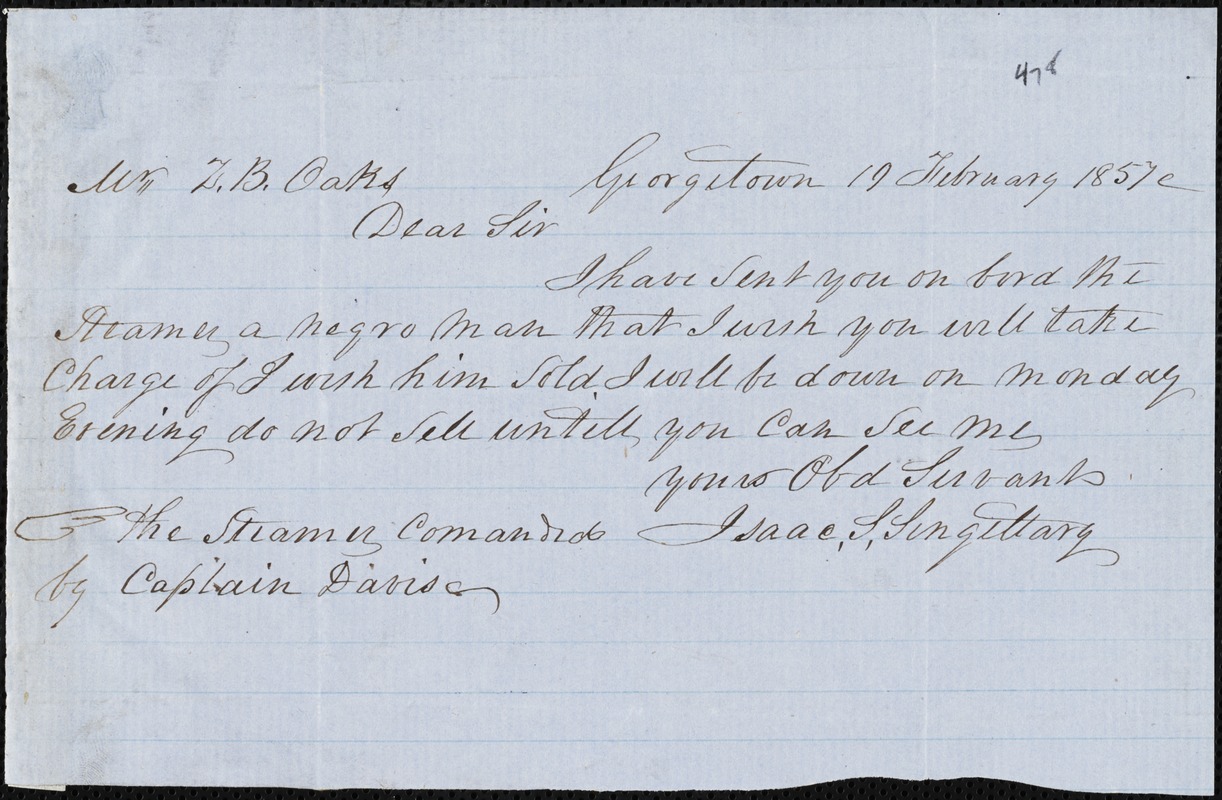 478
Mr Z. B. Oaks Georgetown 19 February 1857
Dear Sir
I have Sent you on bord the
Steamer a negro man that I wish you will take
Charge of I wish him Sold I will be down on monday
Evening do not Sell untill you Can See me
yours Obd Servant
The Steamer Comanded Isaac, S, Singeltary
by Captain Davis